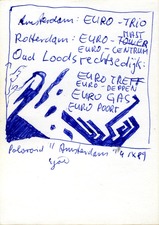 Amsterdam: EURO-TRIO
Rotterdam: EURO-MAST
EURO-TOWER
EURO-CENTRUM
Oud Loodsrechtsedijk:
EURO TREFF
EURO-DEPPEN
EURO GAS
EURO POORT
"Amsterdam"